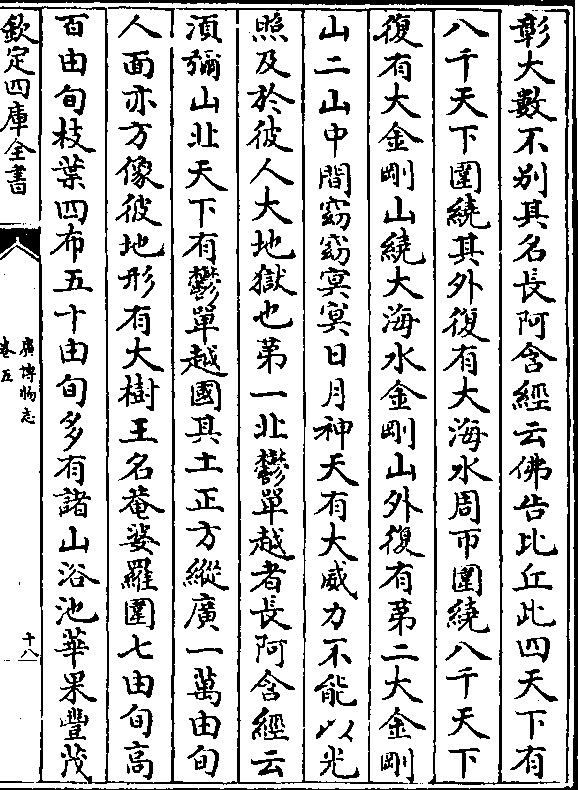 彰大數不别其名長阿含經云佛告比丘此四天下有
八千天下圍繞其外復有大海水周帀圍繞八千天下
復有大金剛山繞大海水金剛山外復有第二大金剛
山二山中間窈窈冥冥日月神天有大威力不能以光
照及於彼人大地獄也第一北鬱單越者長阿含經云
須彌山北天下有鬱單越國其土正方縱廣一萬由旬
人面亦方像彼地形有大樹王名菴婆羅圍七由旬高
百由旬枝葉四布五十由旬多有諸山浴池華果豐茂
欽定四庫全書
廣博物志
卷五
十八